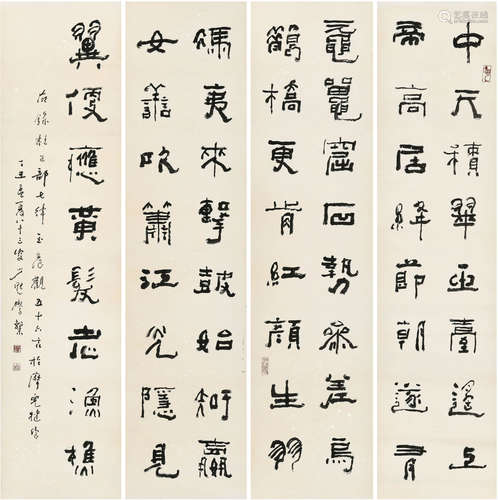 中天積翠玉臺遙上
帝高居絳節朝遂有
黿鼉窟石勢參差烏
鵲橋更肯紅顏生羽
馮夷來擊鼓始知嬴
女善吹簫江光隱見
翼便應黃髮老漁樵
右錄杜工部七律玉臺觀五十六言於摩兜鞬
丁丑夏八十三叟